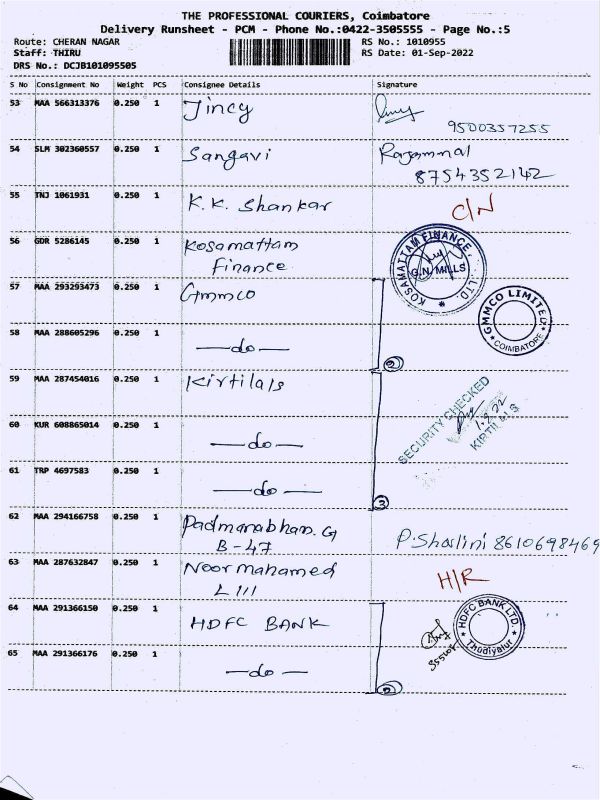 THE PROFESSIONAL COURIERS, Coimbatore
Delivery Runsheet - PCM - Phone No.:0422-3505555 - Page No.:5
Route: CHERAN NAGAR RS No.: 1010955
Staff: THIRU RS Date: 01-Sep-2022
DRS No.: DCJB101095505
S No Consignment No Weight PCS Consignee Details Signature
53 MAA 566313376 0.250 1 Jincy
9500357255
54 SLM 302360557 0.250 1 Sangavi Rajammal
8754352142
55 TNJ 1061931 0.250 1 K.K. Shankar C/N
56 GDR 5286145 0.250 1 Kosamattam
Finance
KOSAMATTAM FINANCE LTD.
G.N. MILLS
57 MAA 293293473 0.250 1 Gmmco
GMMCO LIMITED
COIMBATORE
58 MAA 288605296 0.250 1 —do—
2
59 MAA 287454016 0.250 1 Kirtilals
SECURITY CHECKED
1.9.22
KIRTILALS
60 KUR 608865014 0.250 1 —do—
61 TRP 4697583 0.250 1 —do—
3
62 MAA 294166758 0.250 1 Padmanabhan.G
B-47
P. Shalini 8610698469
63 MAA 287632847 0.250 1 Noor mahamed
L 111
H/R
64 MAA 291366150 0.250 1 HDFC BANK
HDFC BANK LTD.
Thudiyalur
65 MAA 291366176 0.250 1 —do—
2